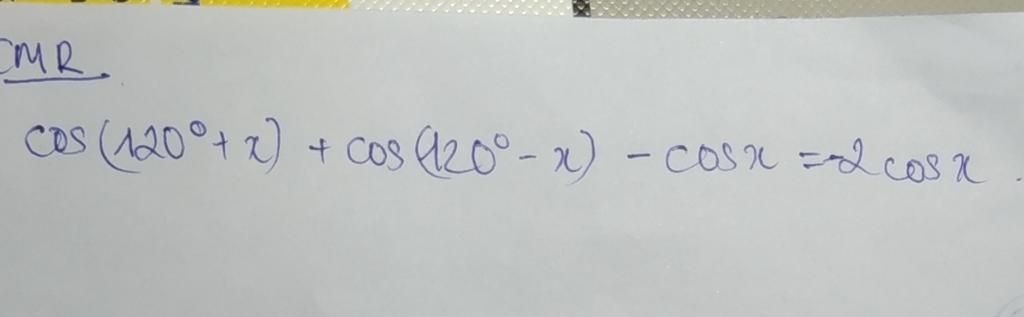 CMR
cos(120° + x) + cos(120° - x) - cosx = -2cosx.